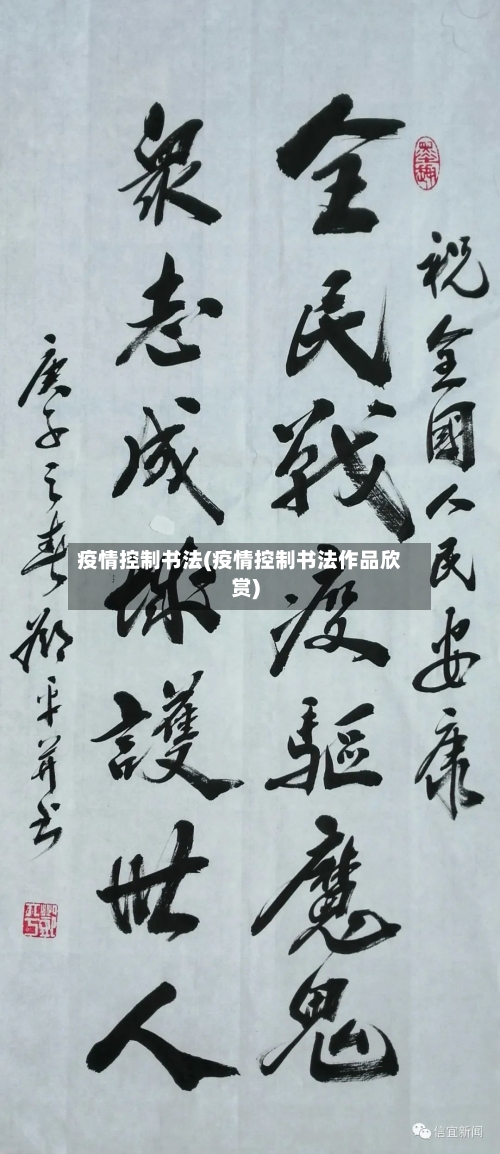 祝全國人民安康
全民戰疫驅魔鬼
衆志成城護世人
庚子之春平并书
疫情控制书法(疫情控制书法作品欣
赏)
信宜新闻